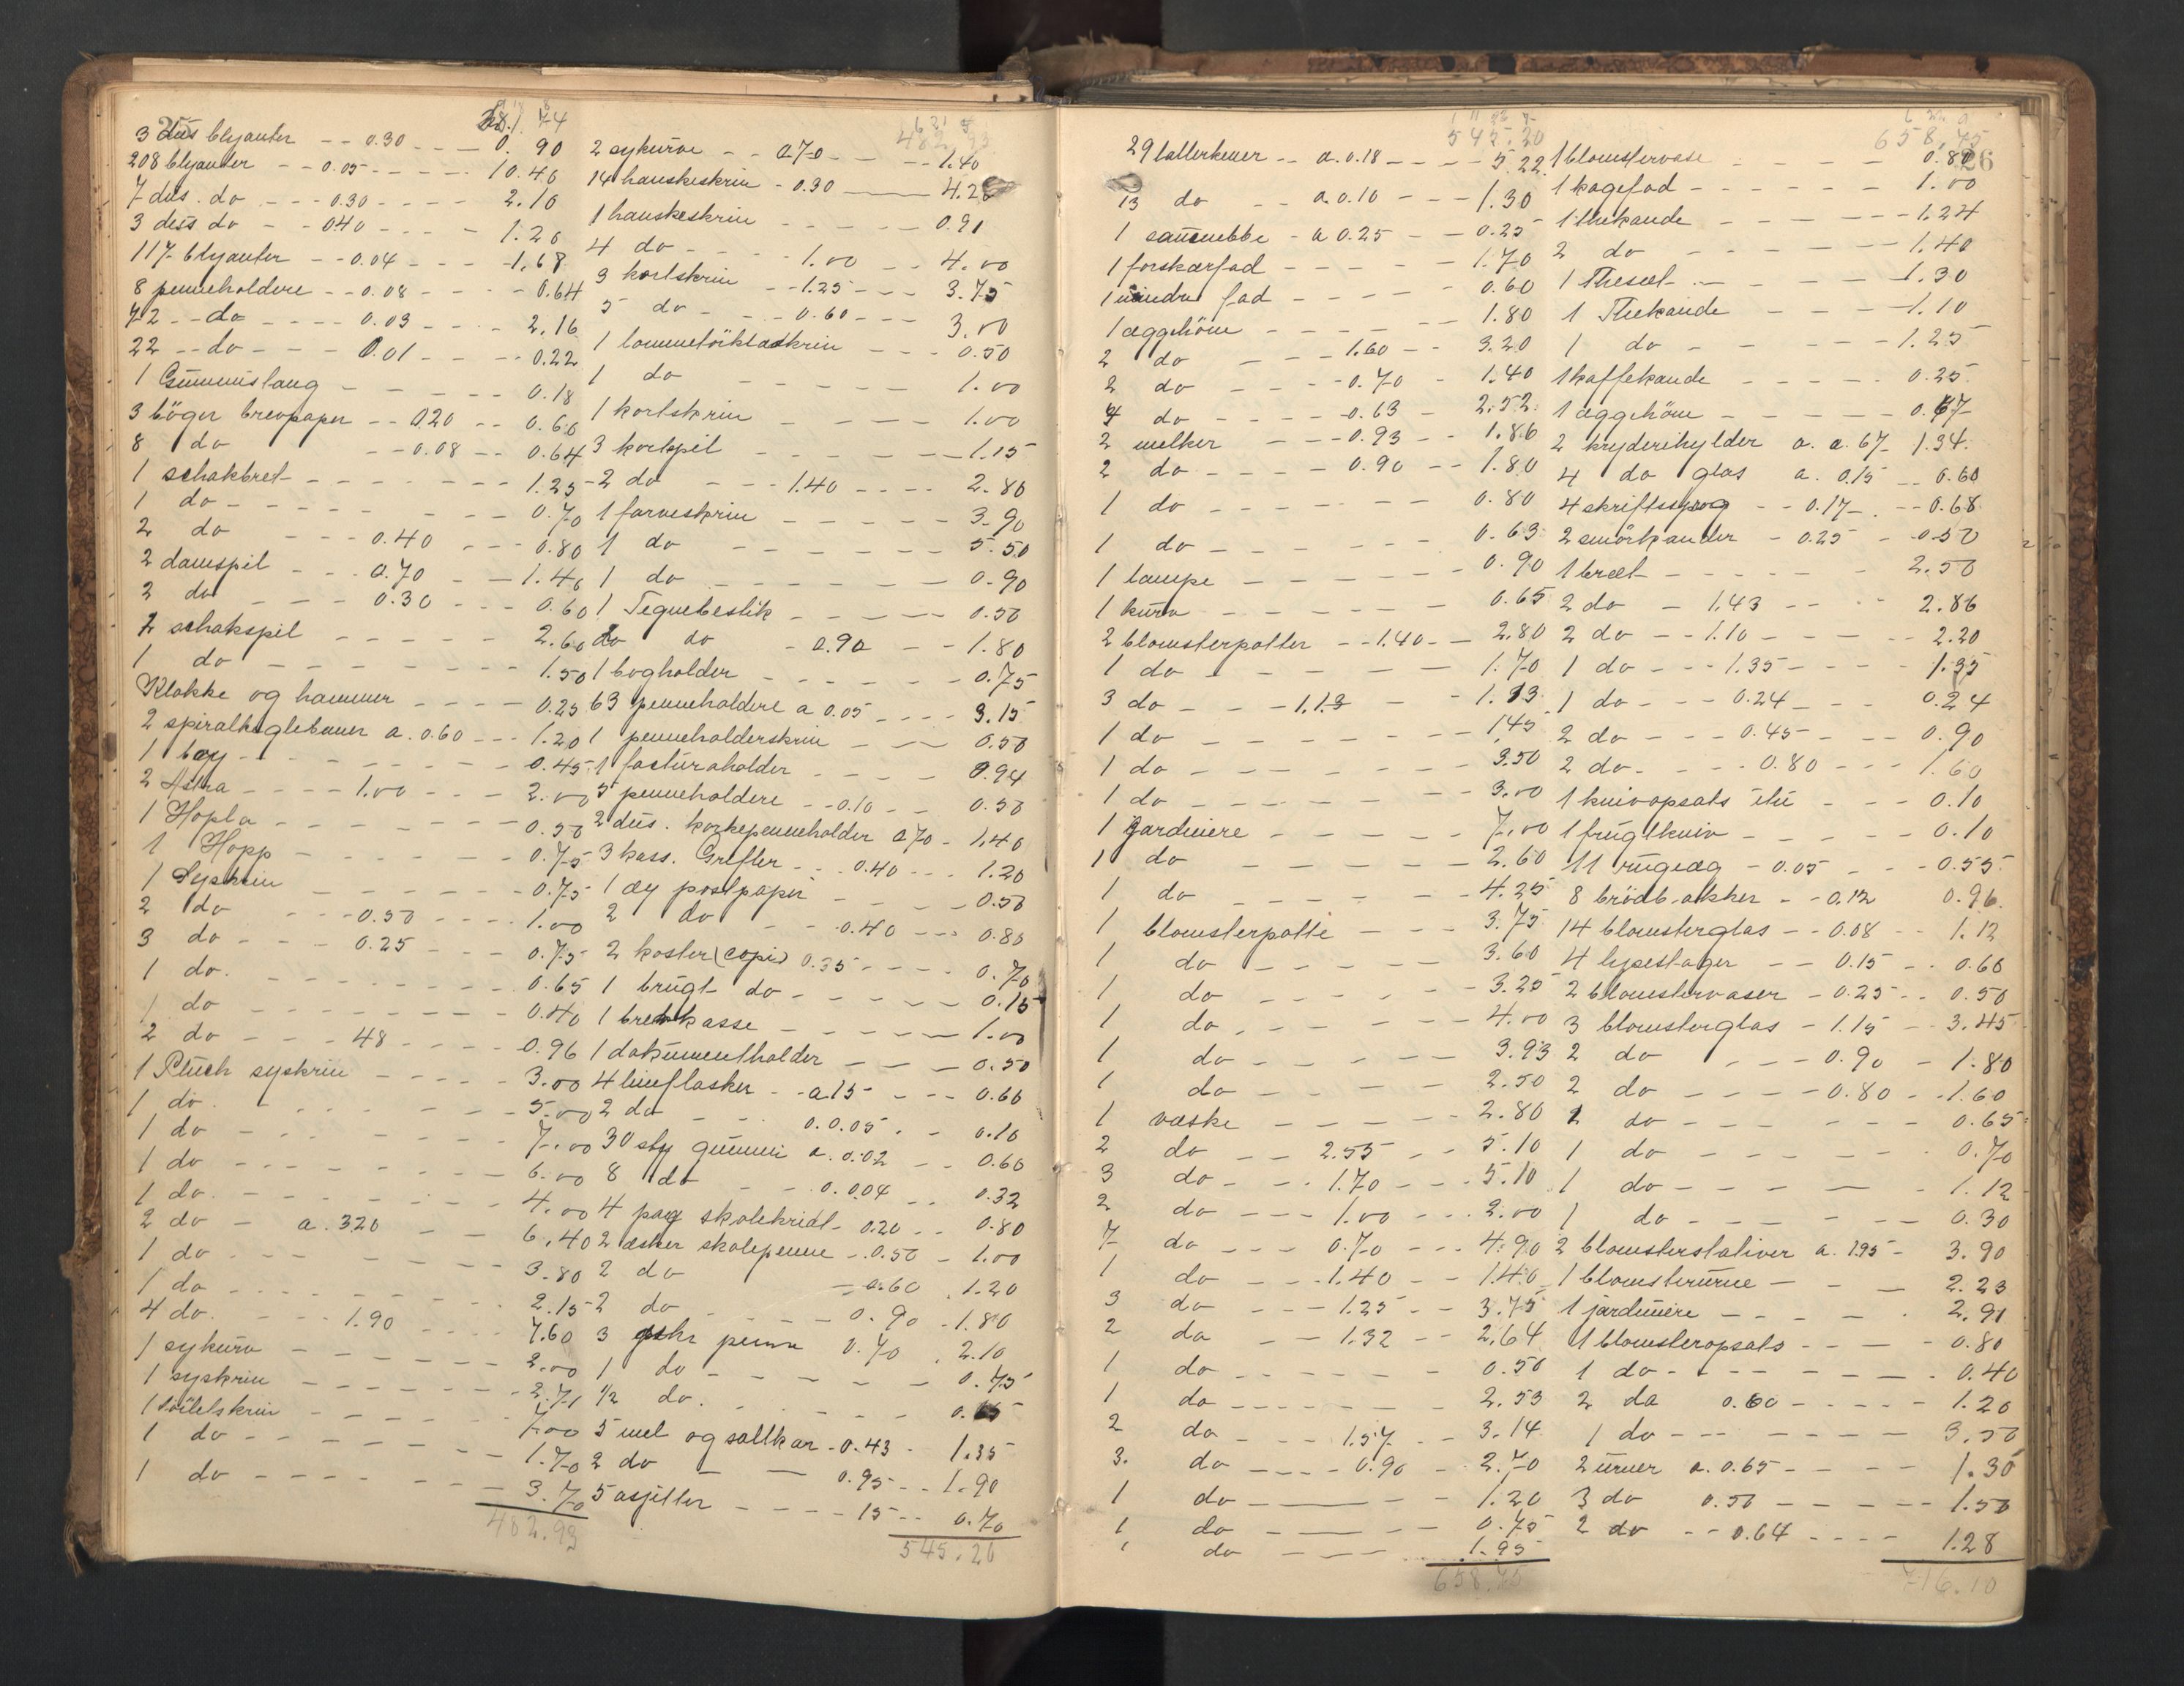 3 dus blyanter -- 0.30 --- 0.90
208 blyanter -- 0.05 ---- 10.40
7 dus. do --- 0.30 ---- 2.10
3 dus do -- 0.40 --- 1.20
117 blyanter -- 0.04 --- 4.68
8 penneholdere -- 0.08 --- 0.64
72 -- do ---- 0.03 ---- 2.16
22 -- do --- 0.01 ---- 0.22
1 Gummislang ---- 0.18
3 böger brevpaper -- 0.20 -- 0.60
8 do -- 0.08 -- 0.64
1 schakbret ------- 1.25
1 do ------ 0.70
2 do --- 0.40 --- 0.80
2 damspil --- 0.70 -- 1.40
2 do --- 0.30 --- 0.60
2 schakspil ----- 2.60
1 do ------- 1.50
Klokke og hammer ---- 0.25
2 spiralkeglebaner a. 0.60 --- 1.20
1 tøy -------- 0.45
2 Astra ---- 1.00 --- 2.00
1 Hopla ------- 0.50
1 Hopp ------ 0.75
1 Syskrin ------ 0.75
2 do --- 0.50 ---- 1.00
3 do --- 0.25 --- 0.75
1 do. ------- 0.65
1 do -------- 0.40
2 do --- 48 ---- 0.96
1 Plüch syskrin ----- 3.00
1 do. ------ 5.00
1 do ------ 7.00
1 do ------- 6.00
1 do. ------- 4.00
2 do - a. 3.20 -- 6.40
1 do ------ 3.80
1 do ------- 2.15
4 do. --- 1.90 ---- 7.60
1 sykurv ------ 2.00
1 syskrin ------ 2.71
1 toiletskrin ----- 7.00
1 do ------- 1.70
1 do ------- 3.70
482.93
482.93
2 sykurve -- 0.70 --- 1.40
14 hanskeskrin - 0.30 --- 4.20
1 hanskeskrin ----- 0.91
4 do --- 1.00 -- 4.00
3 kortskrin -- 1.25 --- 3.75
5 do --- 0.60 --- 3.00
1 lommetörklædskrin --- 0.50
1 do ------ 1.00
1 kortskrin ----- 1.00
3 kortspil ------ 1.15
2 do --- 1.40 ---- 2.80
1 farveskrin ------ 3.90
1 do ------- 5.50
1 do ------- 0.90
1 Tegnebestik ----- 0.50
2 do do - 0.90 -- 1.80
1 bogholder ------ 0.75
63 penneholdere a 0.05 ---- 3.15
1 penneholderskrin --- 0.50
1 facturaholder ---- 0.94
5 penneholdere -- 0.10 -- 0.50
2 dus. korkepenneholder 0.70 - 1.40
3 kass. Grifler --- 0.40 --- 1.20
1 æy postpapir ---- 0.50
2 do -- 0.40 --- 0.80
2 koster (copi) 0.35 ---- 0.70
1 brugt do ------ 0.15
1 brevkasse ------ 1.00
1 dokumentholder ---- 0.50
4 limflasker -- a 15 --- 0.60
2 do -- 0.0.05. - 0.10
30 sty gummi a. 0.02 -- 0.60
8 do -- 0.004 -- 0.32
4 pag skolekridt - 0.20 -- 0.80
2 æsker skolepenne -- 0.50 - 1.00
2 do - 0.60 . 1.20
2 do --- 0.90 - 1.80
3 æskr penne 0.70 . 2.10
1 do ------ 0.75
1/2 do.
5 mel og saltkar - 0.43 - 1.35
2 do -- 0.95 -- 1.90
5 asjetter ---- 15 -- 0.70
545.20
545.20
29 tallerkener -- a. 0.18 ---- 5.22
13 do -- a. 0.10 --- 1.30
1 - a 0.25 -- 0.25
1 forskærfad ----- 1.70
1 mindre fad ---- 0.60
1 æggehöne ------ 1.80
2 do --- 1.60 -- 3.20
2 do ---- 0.70 - 1.40
4 do ---- 0.63 - 2.52
2 melker --- 0.93 -- 1.86
2 do ---- 0.90 -- 1.80
1 do ------- 0.80
1 do ------ 0.63
1 lampe ------ 0.90
1 kurv ------- 0.65
2 blomsterpotter -- 1.40 -- 2.80
1 do ------- 1.70
3 do --- 1.13 -
1 do ------- 1.45
1 do ------- 3.50
1 do ------- 3.00
1 jardiniere ----- 7.00
1 do ------- 2.60
1 do ------- 4.25
1 blomsterpotte --- 3.75
1 do ----- 3.60
1 do ----- 3.25
1 do ----- 4.00
1 do ----- 3.93
1 do ----- 2.50
1 væske ---- 2.80
2 do -- 2.55 -- 5.10
3 do --- 1.70 --- 5.10
2 do --- 1.00 --- 2.00
7 do --- 0.70 --- 4.90
1 do --- 1.40 -- 1.40
3 do --- 1.25 -- 3.75
2 do -- 1.32 -- 2.64
1 do ------ 0.50
1 do ------- 2.53
2 do --- 1.57 -- 3.14
3. do ---- 0.90 - 2.70
1 do ------ 1.20
1 do ----- 0.75
1 do ----- 1.95
658.75
658.75
26
1 blomstervase ---- 0.80
1 kagefad ------ 1.00
1 thekande ----- 1.24
2 do ------ 1.40
1 Thesæt ------ 1.30
1 Thekande ---- 1.10
1 do ------ 1.25
1 kaffekande ---- 0.25
1 æggehöne ----- 0.67
2 kryderihylder a. a. 67 1.34
4 do glas a. 0.15 -- 0.60
4 skriftssprog -- 0.17 -- 0.68
2 smörkander - 0.25 - 0.50
1 bræt ------ 2.50
2 do - 1.43 --- 2.86
2 do -- 1.10 ----- 2.20
1 do --- 1.35 ---- 1.35
1 do --- 0.24 --- 0.24
2 do --- 0.45 --- 0.90
2 do ---- 0.80 --- 1.60
1 knivopsats itu --- 0.10
1 frugtkniv ----- 0.10
11 rugeæg - 0.05 --- 0.55
8 brödbakker -- 0.12 0.96
14 blomsterglas -- 0.08 -- 1.12
4 lysestager -- 0.15 -- 0.60
2 blomstervaser - 0.25 -- 0.50
3 blomsterglas - 1.15 -- 3.45
2 do --- 0.90 - 1.80
2 do ---- 0.80 -- 1.60
1 do ------ 0.65
1 do ------ 0.70
1 do ----- 1.12
1 do ------ 0.30
2 blomsterstativer a. 1.95 - 3.90
1 blomsterurne --- 2.23
1 jardiniere ---- 2.91
1 blomsteropsats ---- 0.80
1 do ------- 0.40
2 do 0.60 ----- 1.20
1 do ------- 3.50
2 urner a. 0.65 ---- 1.30
3 do 0.50 ----- 1.50
2 do -- 0.64 ---- 1.28
716.10